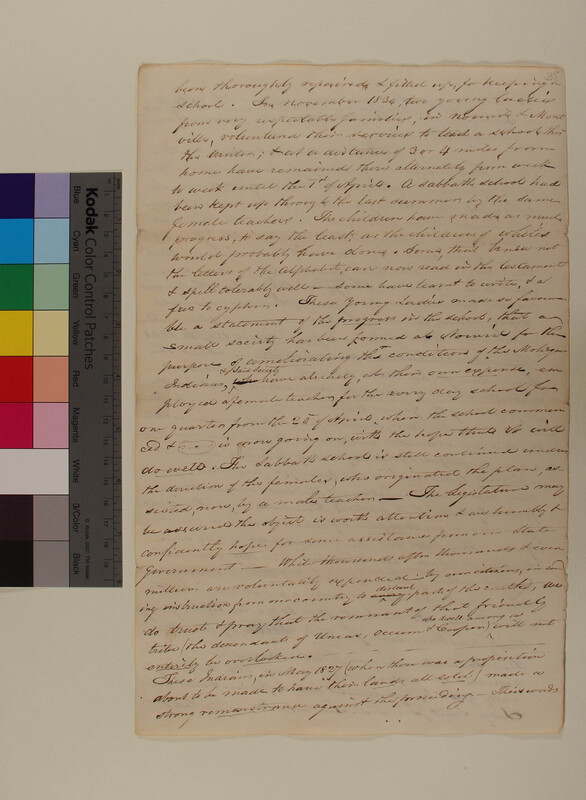 been thoroughly repaired, & fitted up, for keeping a
school. In November 1830, two young Ladies
from very respectable families, in Norwich &
ville, volunteered their services to lead a school thro
the Winter; & at a distance of 3 or 4 miles from
home have remained there alternately from week
to week until the 1st of April. A sabbath school had
been kept up through the last summer by the same
female teachers. The children have made as much
progress, to say the least, as the children of whites
would probably have done. Some, that knew not
the letters of the Alphabet, can now read in the testament
& spell tolerably well — some have learnt to write, & a
few to cypher. These young Ladies made so favora-
ble a statement of the progress in the school, that a
small society has been formed at Norwich for the
purpose of ameliorating the condition of the Mohegan
Indians, & said Society have already, at their own expense, em
ployed a female teacher for the every day school for
one quarter from the 25 of April, when the school commen
ced & is now going on, with the hope that it will
do well. The Sabbath school is still continued under
the direction of the females, who originated the plan, as
sisted, now, by a male teacher — The legislature may
be assured the object is worth attention & we humbly &
confidently hope for some assistance from our State
Government — While thousands after thousands & even
millions are voluntarily expended by our citizens, in
ing instruction from our country, to distant parts of the earth, we
do trust & pray that the remnant of that friendly
tribe (the descendants of Uncas, Occum & Cooper) will not
entirely be overlooked.
These Indians, in May 1827 (when there was a proposition
about to be made to have their lands all sold) made a
strong remonstrance against the proceeding — This word
6
Kodak
Color Control Patches
Blue
Cyan
Green
Yellow
Red
Magenta
White
3/Color
Black